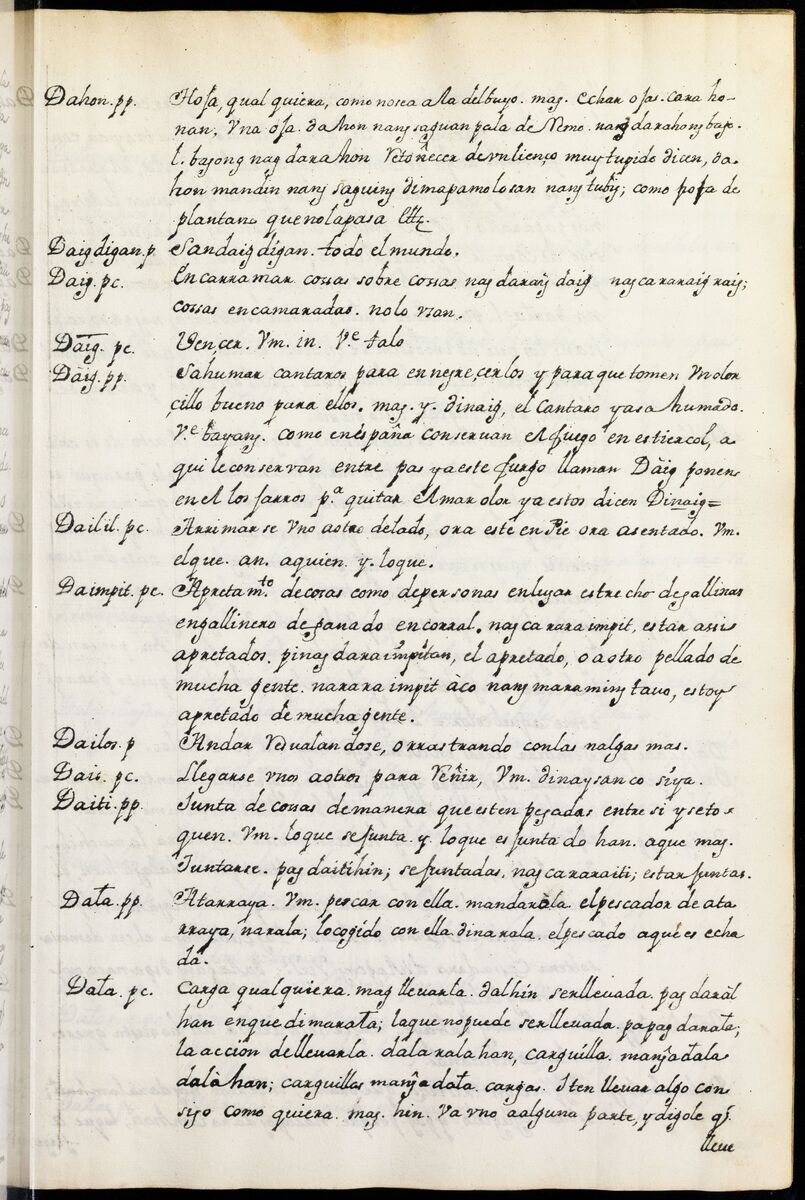 Dahon. pp. Hoja, qual quiera, como no sea a la del buyo. mag. echar ojas. cara ho-
nan, vna oja. dahon nang saguan pala de Remo. nang darahong bajo.
l. basong nag darahon Vetoñecer de vn lienço muy tupido dicen, da
hon mandin nang saguing dimapamolosan nang tubig; como hoja de
plantano que no la pasa Ettz.
Daig digan. p. Sandaig digan. todo el mundo.
Daig. pc. Encarramar cossas sobre cossas nag daraig daig nag cararaig raig;
cossas encamaradas. no lo vsan.
Daig. pc. Vençer. Vm. in. V.e talo
Dàig. pp. Sahumar cantaros para ennegreçerlos y para que tomen vn olor
çillo bueno para ellos. mag. y. dinaig, el cantaro ya sa humado.
V.e bayang. como en españa conservan el fuego en estiercol, a
qui le conservan entre pas ya este fuego llaman Dàig ponen
en el los jarros p.a quitar el mar olor ya estos dicen Dinaig=
Dailil. pc. Arrimarse vno a otro de lado, ora esté en Pie ora asentado. Vm.
el que. an. a quien. y. lo que.
Daimpit. pc. Apretam.to de cosas como de personas en lugar estrecho de gallinas
en gallinero de ganado en corral. nag ca rara impit, estar assi
apretados. pinag dara impitan, el apretado, o a otro pellado de
mucha gente. narara impit àco nang maraming tauo, estoy
apretado de mucha gente.
Dailos. p Andar Vedualandose, o rrastrando con las nalgas mas.
Dais. pc. Llegarse vnos a otros para Reñir, Vm. dinaysan co siya.
Daiti. pp. Junta de cossas de manera que esten pegadas entre si y se to-
quen. Vm. lo que se junta. y. lo que es junta do han. a que mag.
Juntarse. pag daitihin; se juntadas, nag ca raraiti; estar juntas.
Data. pp. Atarraya. Vm. pescar con ella. mandaràla. el pescador de ata
rraya, narala; lo cogido con ella dinarala. el pescado a que es echa
da.
Data. pc. Carga qual quiera. mag llevarla. dalhin ser llevada. pag daràl
han en que dimarata; la que no puede ser llevada. papag darata;
la acción de llevarla. dala rala han, carguilla. manga dala
dalà han; carguillas manga data. cargas. Iten llevar algo con
sigo como quiera. mag. hin. Va vno a alguna parte, y digole q.
lleue